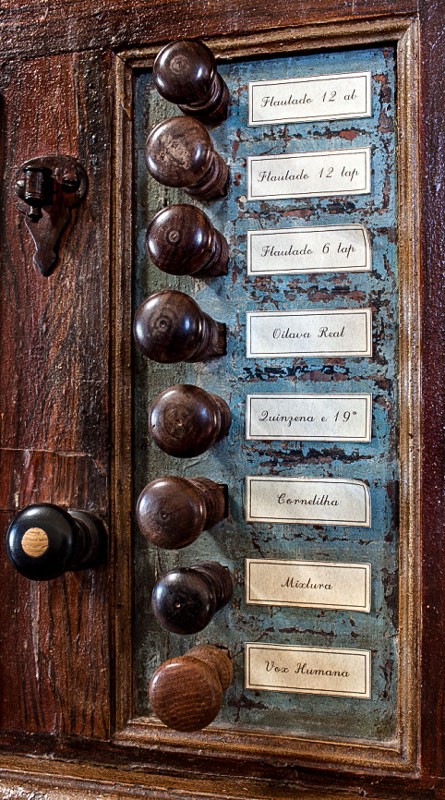 Flautado 12 ab
Flautado 12 tap
Flautado 6 tap
Oitava Real
Quinzena e 19ª
Cornetilha
Mixtura
Vox Humana